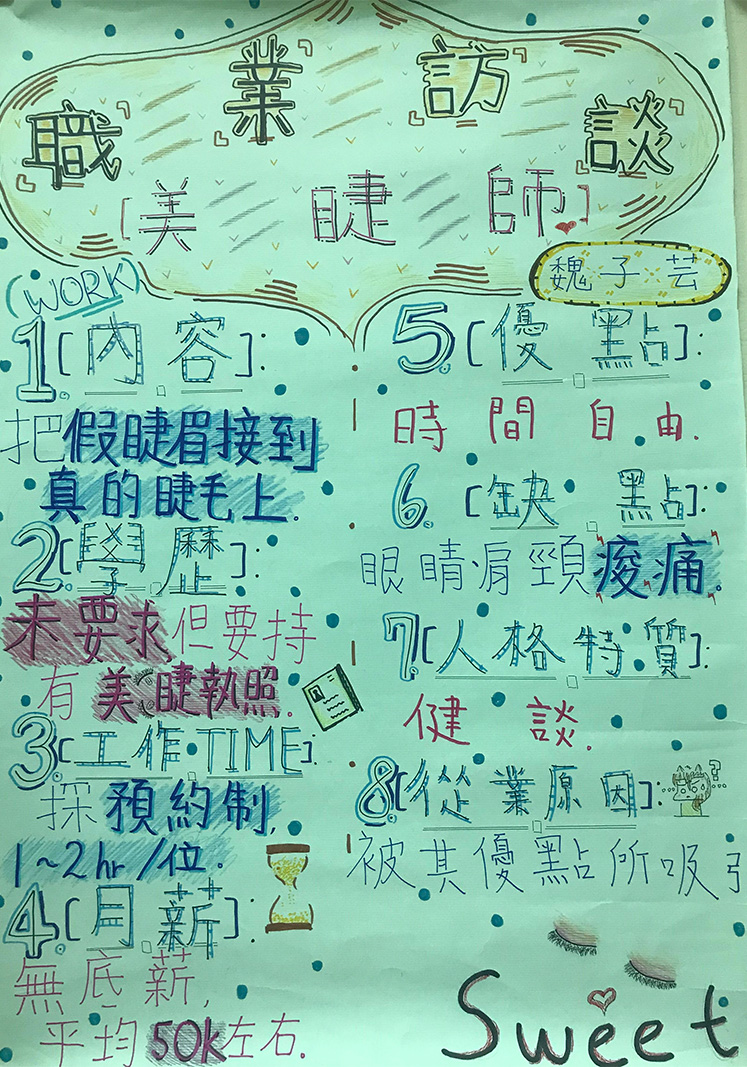 職業訪談
[美睫師]
魏子芸
(WORK)
1[內容]:
把假睫眉接到
真的睫毛上.
2.[學歷]:
未要求但要持
有美睫執照.
3.[工作.TIME]:
採預約制,
1~2hr/位.
4.[月薪]:
無底薪,
平均50k左右.
5.[優點]:
時間自由.
6.[缺點]:
眼睛肩頸痠痛.
7.[人格特質]:
健談.
8.[從業原因]:
?
被其優點所吸引
Sweet